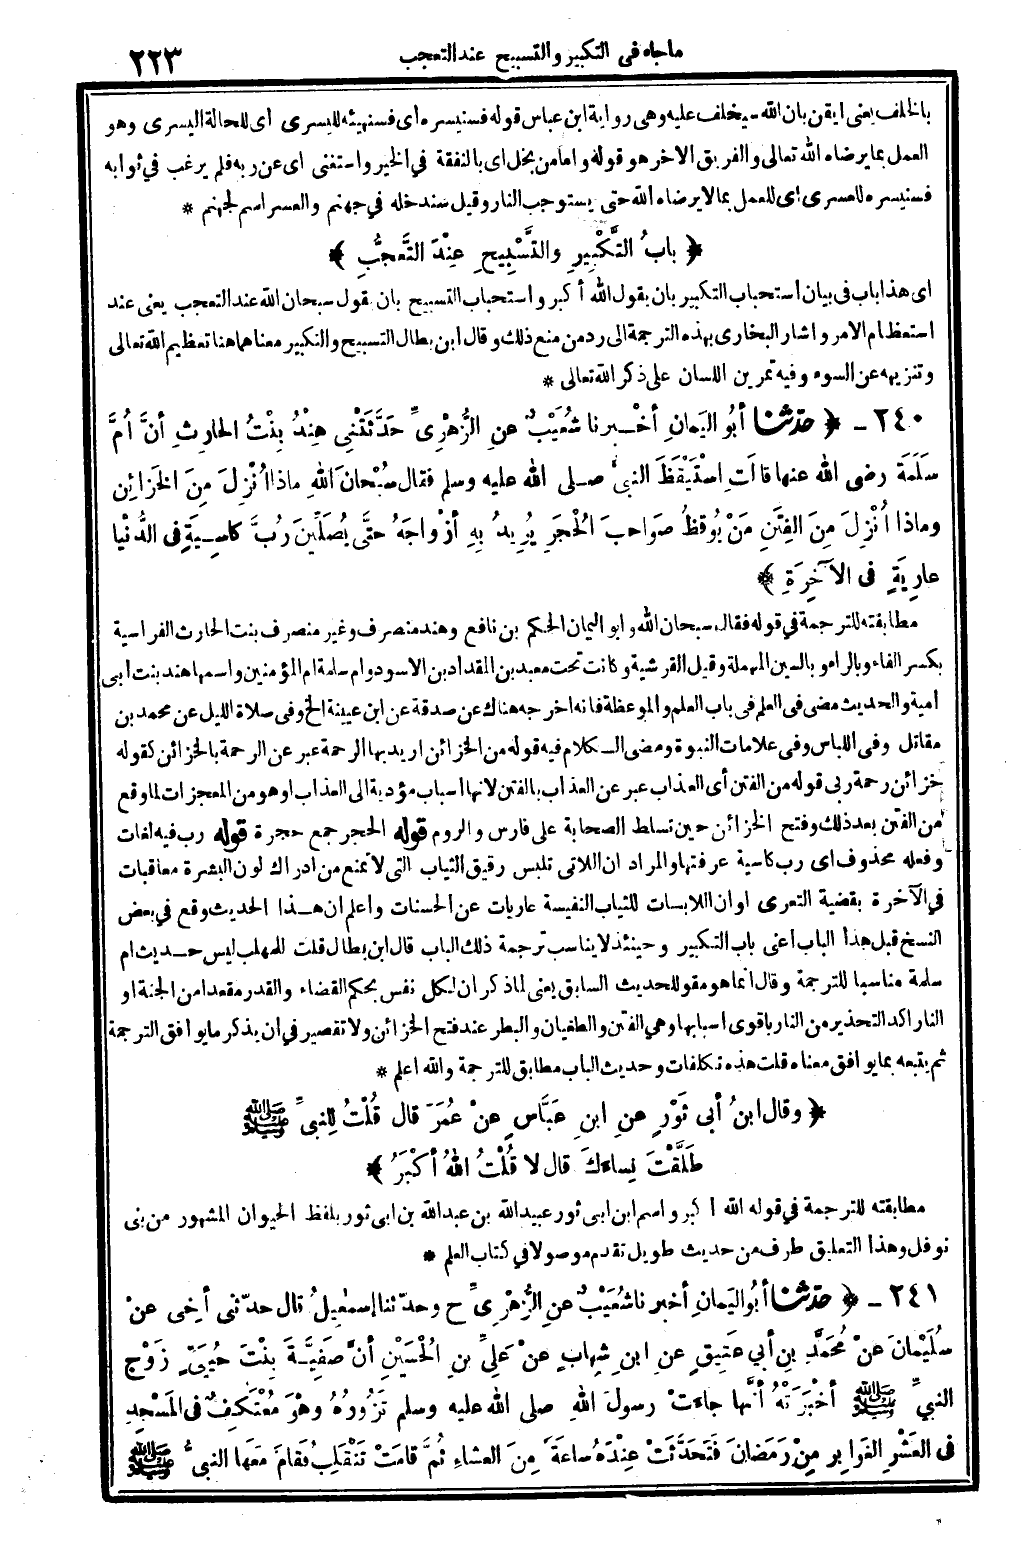 ماجاء في التكبير والتسبيح عند التعجب ٢٢٣
بالخلف يعنى ايقن بان الله سيخلف عليه وهى رواية ابن عباس قوله فسنيسره اى فسنهيئه لليسرى اى للحالة اليسرى وهو
العمل بما يرضاه الله تعالى والفريق الآخر هو قوله واما من بخل اى بالنفقة في الخير واستغنى اى عن ربه فلم يرغب في ثوابه
فسنيسره للعسرى اى للعمل بما لا يرضاه الله حتى يستوجب النار وقيل سندخله في جهنم والعسر اسم لجهنم *
﴿ بابُ التَّكْبِيرِ والتَّسْبِيحِ عِنْدَ التَّعَجُّبِ ﴾
اى هذا باب فى بيان استحباب التكبير بان يقول الله أكبر واستحباب التسبيح بان يقول سبحان الله عند التعجب يعنى عند
استعظام الامر واشار البخارى بهذه الترجمة الى رد من منع ذلك وقال ابن بطال التسبيح والتكبير معناهما هنا تعظيم الله تعالى
وتنزيهه عن السوء وفيه تمرين اللسان على ذكر الله تعالى *
٢٤٠ ـ ﴿ حدّثنا أبُو اليَمانِ أخْبرنا شُعَيْبٌ عنِ الزُّهْرِىِّ حَدَّثَتْنِى هِنْدُ بِنْتُ الحارِثِ أنَّ أُمَّ
سَلَمَةَ رضى الله عنها قالَتِ اسْتَيْقَظَ النبىُّ صلى الله عليه وسلم فقال سُبْحانَ اللهِ ماذا أُنْزِلَ مِنَ الخَزائِنِ
وماذا أُنْزِلَ مِنَ الفِتَنِ مَنْ يُوقِظُ صَوَاحِبَ الحُجَرِ يُرِيدُ بِهِ أزْوَاجَهُ حتَّى يُصَلِّينَ رُبَّ كاسِيَةٍ فى الدُّنْيا
عارِيَةٍ فى الآخِرَةِ ﴾
مطابقته للترجمة في قوله فقال سبحان الله وابو اليمان الحكم بن نافع وهند منصرف وغير منصرف بنت الحارث الفراسية
بكسر الفاء وبالراء وبالسين المهملة وقيل القرشية وكانت تحت معبد بن المقداد بن الاسود وام سلمة ام المؤمنين واسمها هند بنت ابى
امية والحديث مضى فى العلم فى باب العلم والموعظة فانه اخرجه هناك عن صدقة عن ابن عيينة الخ وفى صلاة الليل عن محمد بن
مقاتل وفى اللباس وفى علامات النبوة ومضى الكلام فيه قوله من الخزائن اريد بها الرحمة عبر عن الرحمة بالخزائن كقوله
خزائن رحمة ربى قوله من الفتن أى العذاب عبر عن العذاب بالفتن لانها اسباب مؤدية الى العذاب او هو من المعجزات لما وقع
من الفتن بعد ذلك وفتح الخزائن حين تسلط الصحابة على فارس والروم قوله الحجر جمع حجرة قوله رب فيه لغات
وفعله محذوف اى رب كاسية عرفتها والمراد ان اللاتى تلبس رقيق الثياب التى لا تمنع من ادراك لون البشرة معاقبات
في الآخرة بقضية التعرى او ان اللابسات للثياب النفيسة عاريات عن الحسنات واعلم ان هذا الحديث وقع في بعض
النسخ قبل هذا الباب اعنى باب التكبير وحينئذ لا يناسب ترجمة ذلك الباب قال ابن بطال قلت للمهلب ليس حديث ام
سلمة مناسبا للترجمة وقال انما هو مقو للحديث السابق يعنى لما ذكر ان لكل نفس بحكم القضاء والقدر مقعدا من الجنة او
النار اكد التحذير من النار باقوى اسبابها وهي الفتن والطغيان والبطر عند فتح الخزائن ولا تقصير في ان يذكر ما يوافق الترجمة
ثم يتبعه بما يوافق معناه قلت هذه تكلفات وحديث الباب مطابق للترجمة والله اعلم *
﴿ وقال ابنُ أبى ثَوْرٍ عنِ ابنِ عَبَّاسٍ عنْ عُمَرَ قال قُلْتُ لِلنبىِّ ﷺ
طَلَّقْتَ نِساءَكَ قال لا قُلْتُ اللهُ أكْبَرُ ﴾
مطابقته للترجمة في قوله الله اكبر واسم ابن ابى ثور عبيد الله بن عبد الله بن ابى ثور بلفظ الحيوان المشهور من بنى
نوفل وهذا التعليق طرف من حديث طويل تقدم موصولا في كتاب العلم *
٢٤١ ـ ﴿ حدّثنا أبُو اليَمانِ أخبرنا شُعَيْبٌ عنِ الزُّهْرِىِّ ح وحدّثنا إسمٰعِيلُ قال حدّثنى أخِى عنْ
سُلَيْمانَ عنْ مُحَمَّدِ بنِ أبي عتِيقٍ عنِ ابنِ شِهابٍ عنْ عَلِيِّ بنِ الحُسَيْنِ أنَّ صَفِيَّةَ بِنْتَ حُيَيٍّ زَوْجَ
النبيِّ ﷺ أخْبَرَتْهُ أنَّها جاءَتْ رسولَ اللهِ صلى الله عليه وسلم تَزُورُهُ وهْوَ مُعْتَكِفٌ فى المَسْجِدِ
فى العَشْرِ الغَوَابِرِ مِنْ رَمَضانَ فَتَحَدَّثَتْ عِنْدَهُ ساعَةً مِنَ العشاءِ ثُمَّ قامَتْ تَنْقَلِبُ فَقامَ مَعَها النبىُّ ﷺ